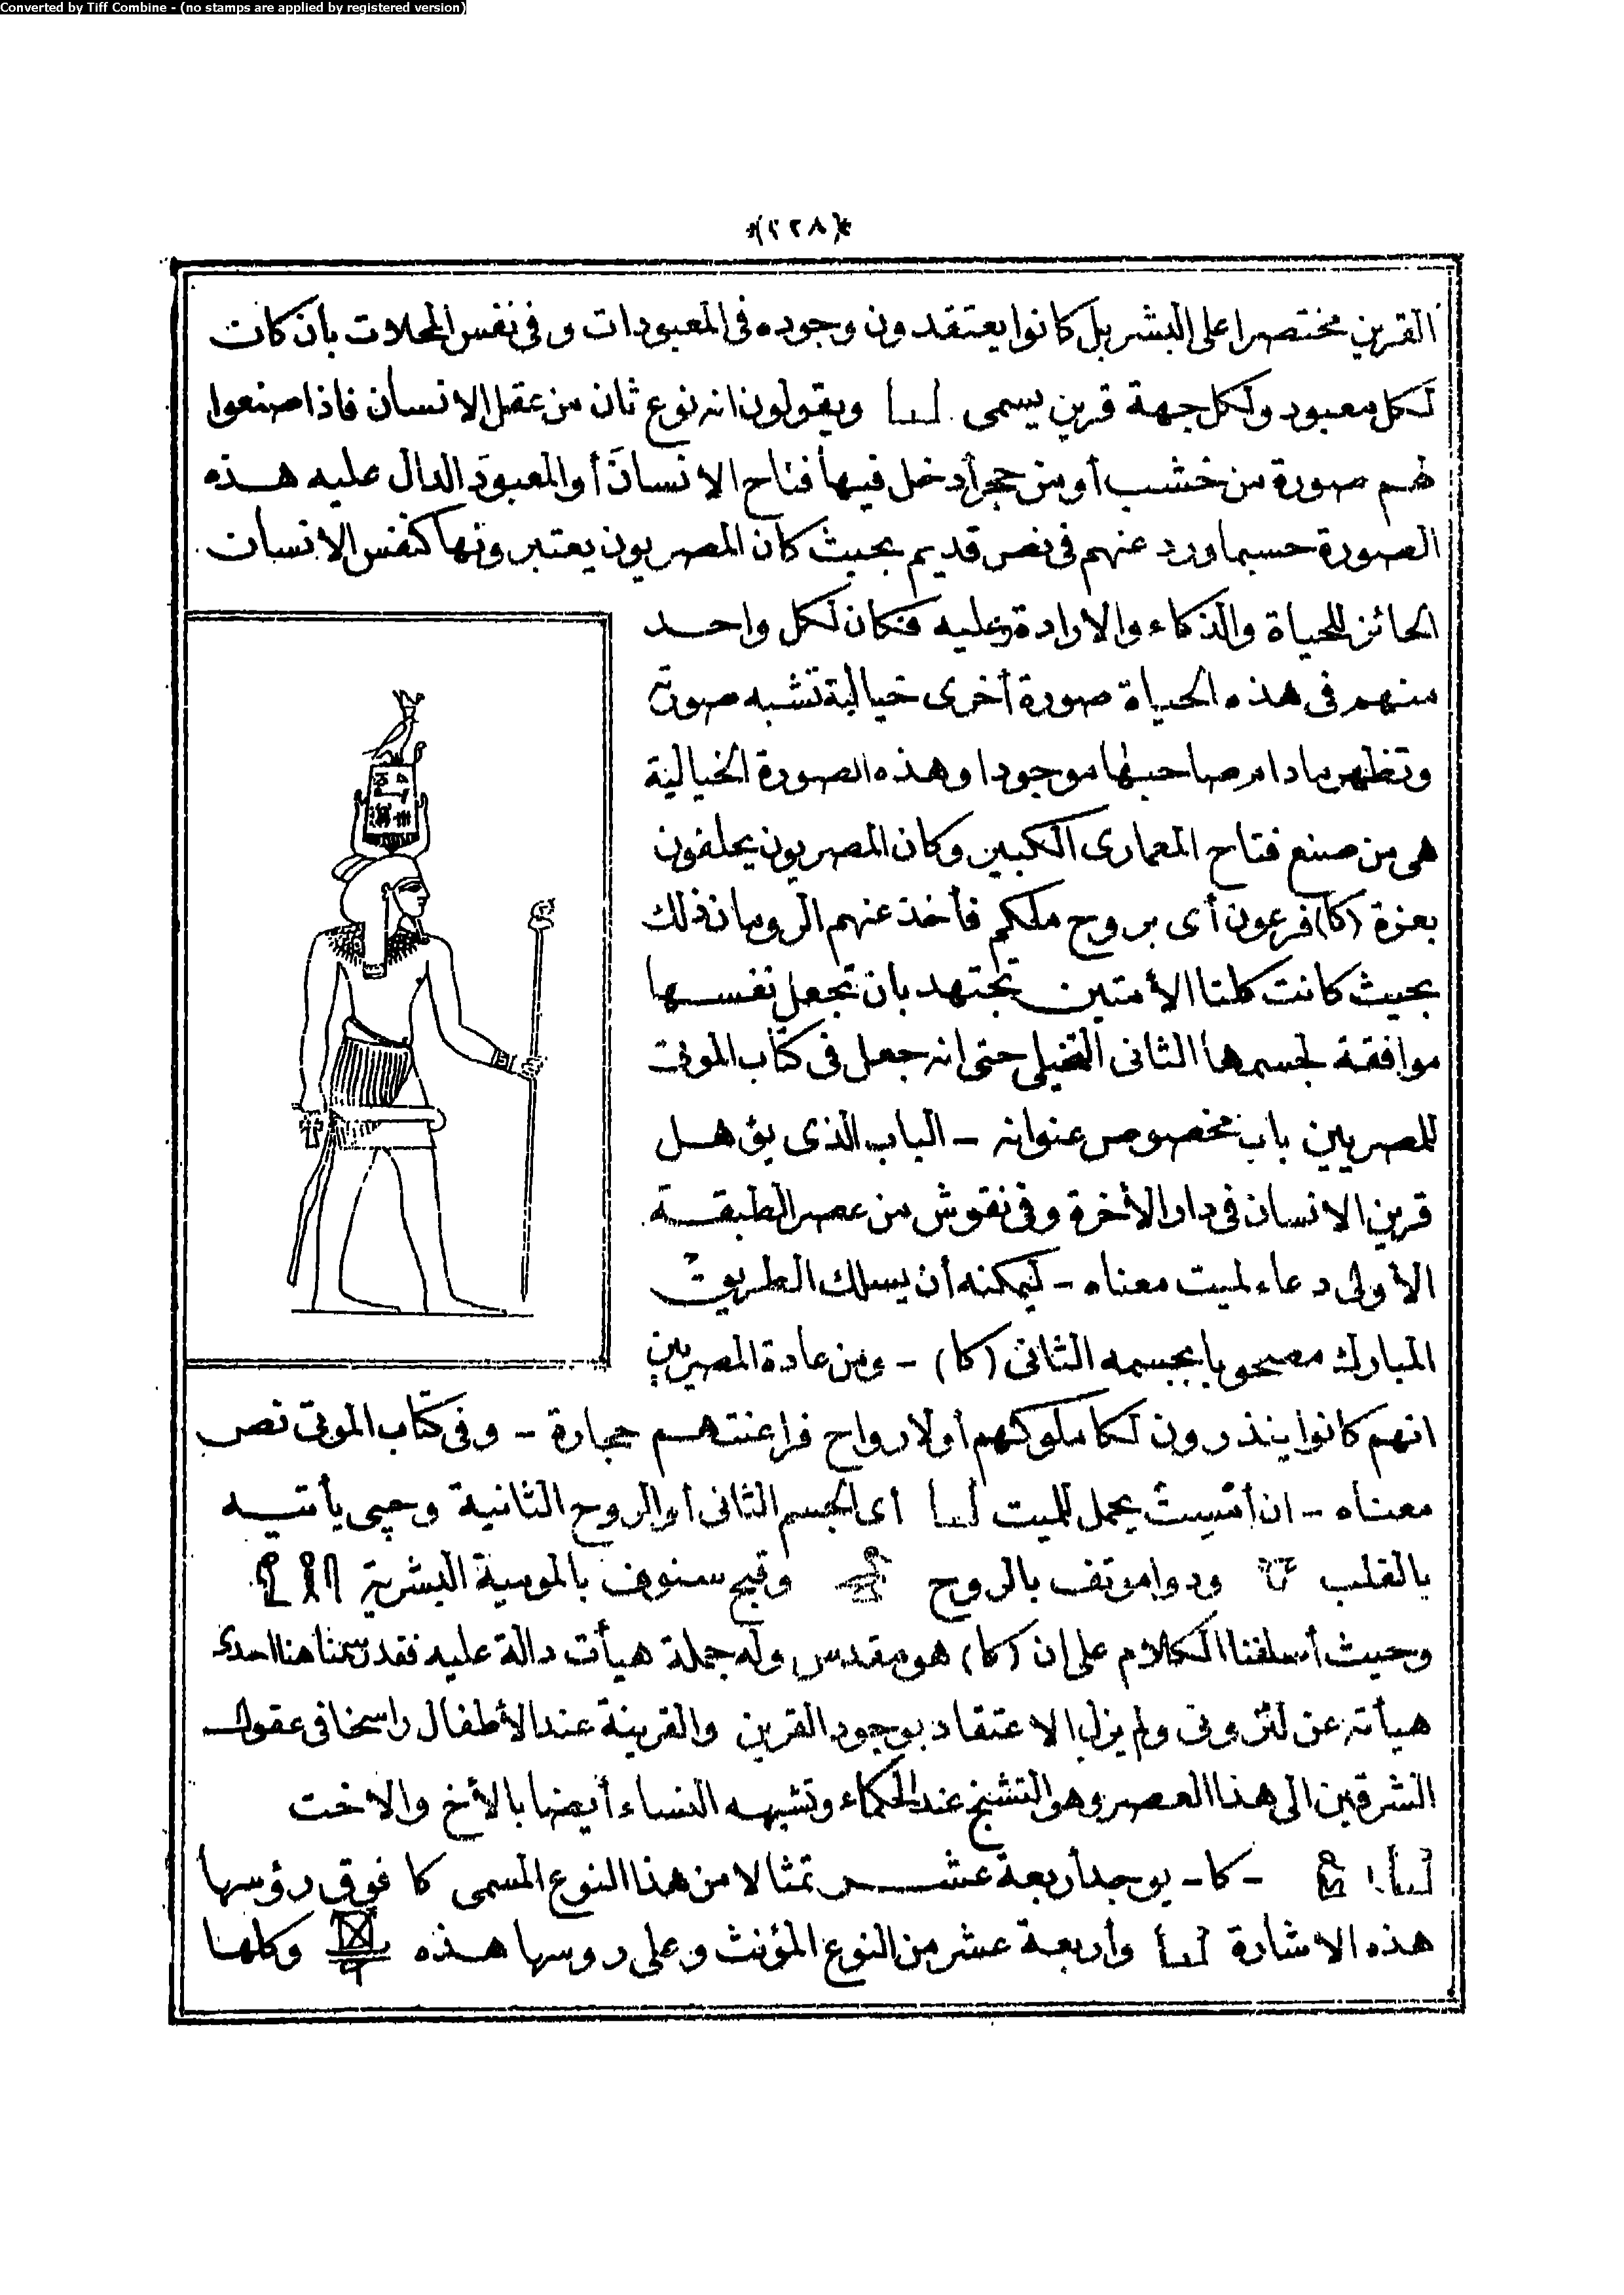 Converted by Tiff Combine - (no stamps are applied by registered version)
*(٢٢٨)*
القرين مختصرا على البشر بل كانوا يعتقدون وجوده فى المعبودات وفى نفس المحلات بأن كان
لكل معبود ولكل جهة قرين يسمى ويقولون انه نوع ثان من عقل الانسان فاذا صنعوا
لهم صورة من خشب أو من حجر أدخل فيها فتاح الانسان أو المعبود الدال عليه هذه
الصورة حسبما ورد عنهم فى نص قديم بحيث كان المصريون يعتبرونها كنفس الانسان
الحائز للحياة والذكاء والارادة وعليه فكان لكل واحد
منهم فى هذه الحياة صورة أخرى خيالية تشبه صورته
وتظهر مادام صاحبها موجودا وهذه الصورة الخيالية
هى من صنع فتاح المعمارى الكبير وكان المصريون يحلفون
بعزة (كا) فرعون أى بروح ملكهم فأخذ عنهم الرومان ذلك
بحيث كانت كلتا الأمتين تجتهد بأن تجعل نفسها
موافقة لجسمها الثانى التخيلى حتى انه جعل فى كتاب الموتى
للمصريين باب مخصوص عنوانه - الباب الذى يؤهل
قرين الانسان فى دار الأخرة وفى نقوش من عصر الطبقة
الأولى دعاء لميت معناه - ليمكنه أن يسلك الطريق
المبارك مصحوبا بجسمه الثانى (كا) - ومن عادة المصريين
انهم كانوا ينذرون لكا ملوكهم أو لارواح فراعنتهم حجارة - وفى كتاب الموتى نص
معناه - ان أمسيث يحمل للميت أى الجسم الثانى أو الروح الثانية وحپى يأتيه
بالقلب ودواموتف بالروح وقبح سنوف بالمومية البشرية
وحيث أسلفنا الكلام على ان (كا) هو مقدس وله جملة هيأت دالة عليه فقد رسمنا هنا احدى
هيأته عن لنزونى ولم يزل الاعتقاد بوجود القرين والقرينة عند الأطفال راسخا فى عقول
الشرقيين الى هذا العصر وهو التشنج عند الحكماء وتشبهه النساء أيضا بالأخ والاخت
- كا - يوجد أربعة عشر تمثالا من هذا النوع المسمى كا فوق رؤسها
هذه الاشارة وأربعة عشر من النوع المؤنث وعلى روسها هذه وكلها